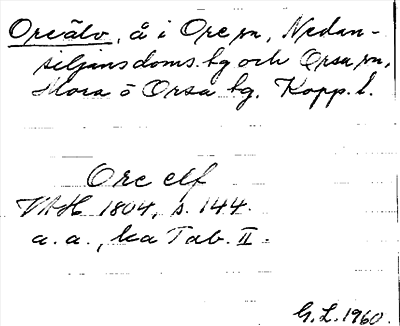 Oreälv, å i Ore sn, Nedan-
siljans doms.hg och Orsa sn,
Mora o Orsa hg. Kopp. l.
Ore elf
VAH 1804, s. 144.
a. a., ka Tab. II.
G. L. 1960.